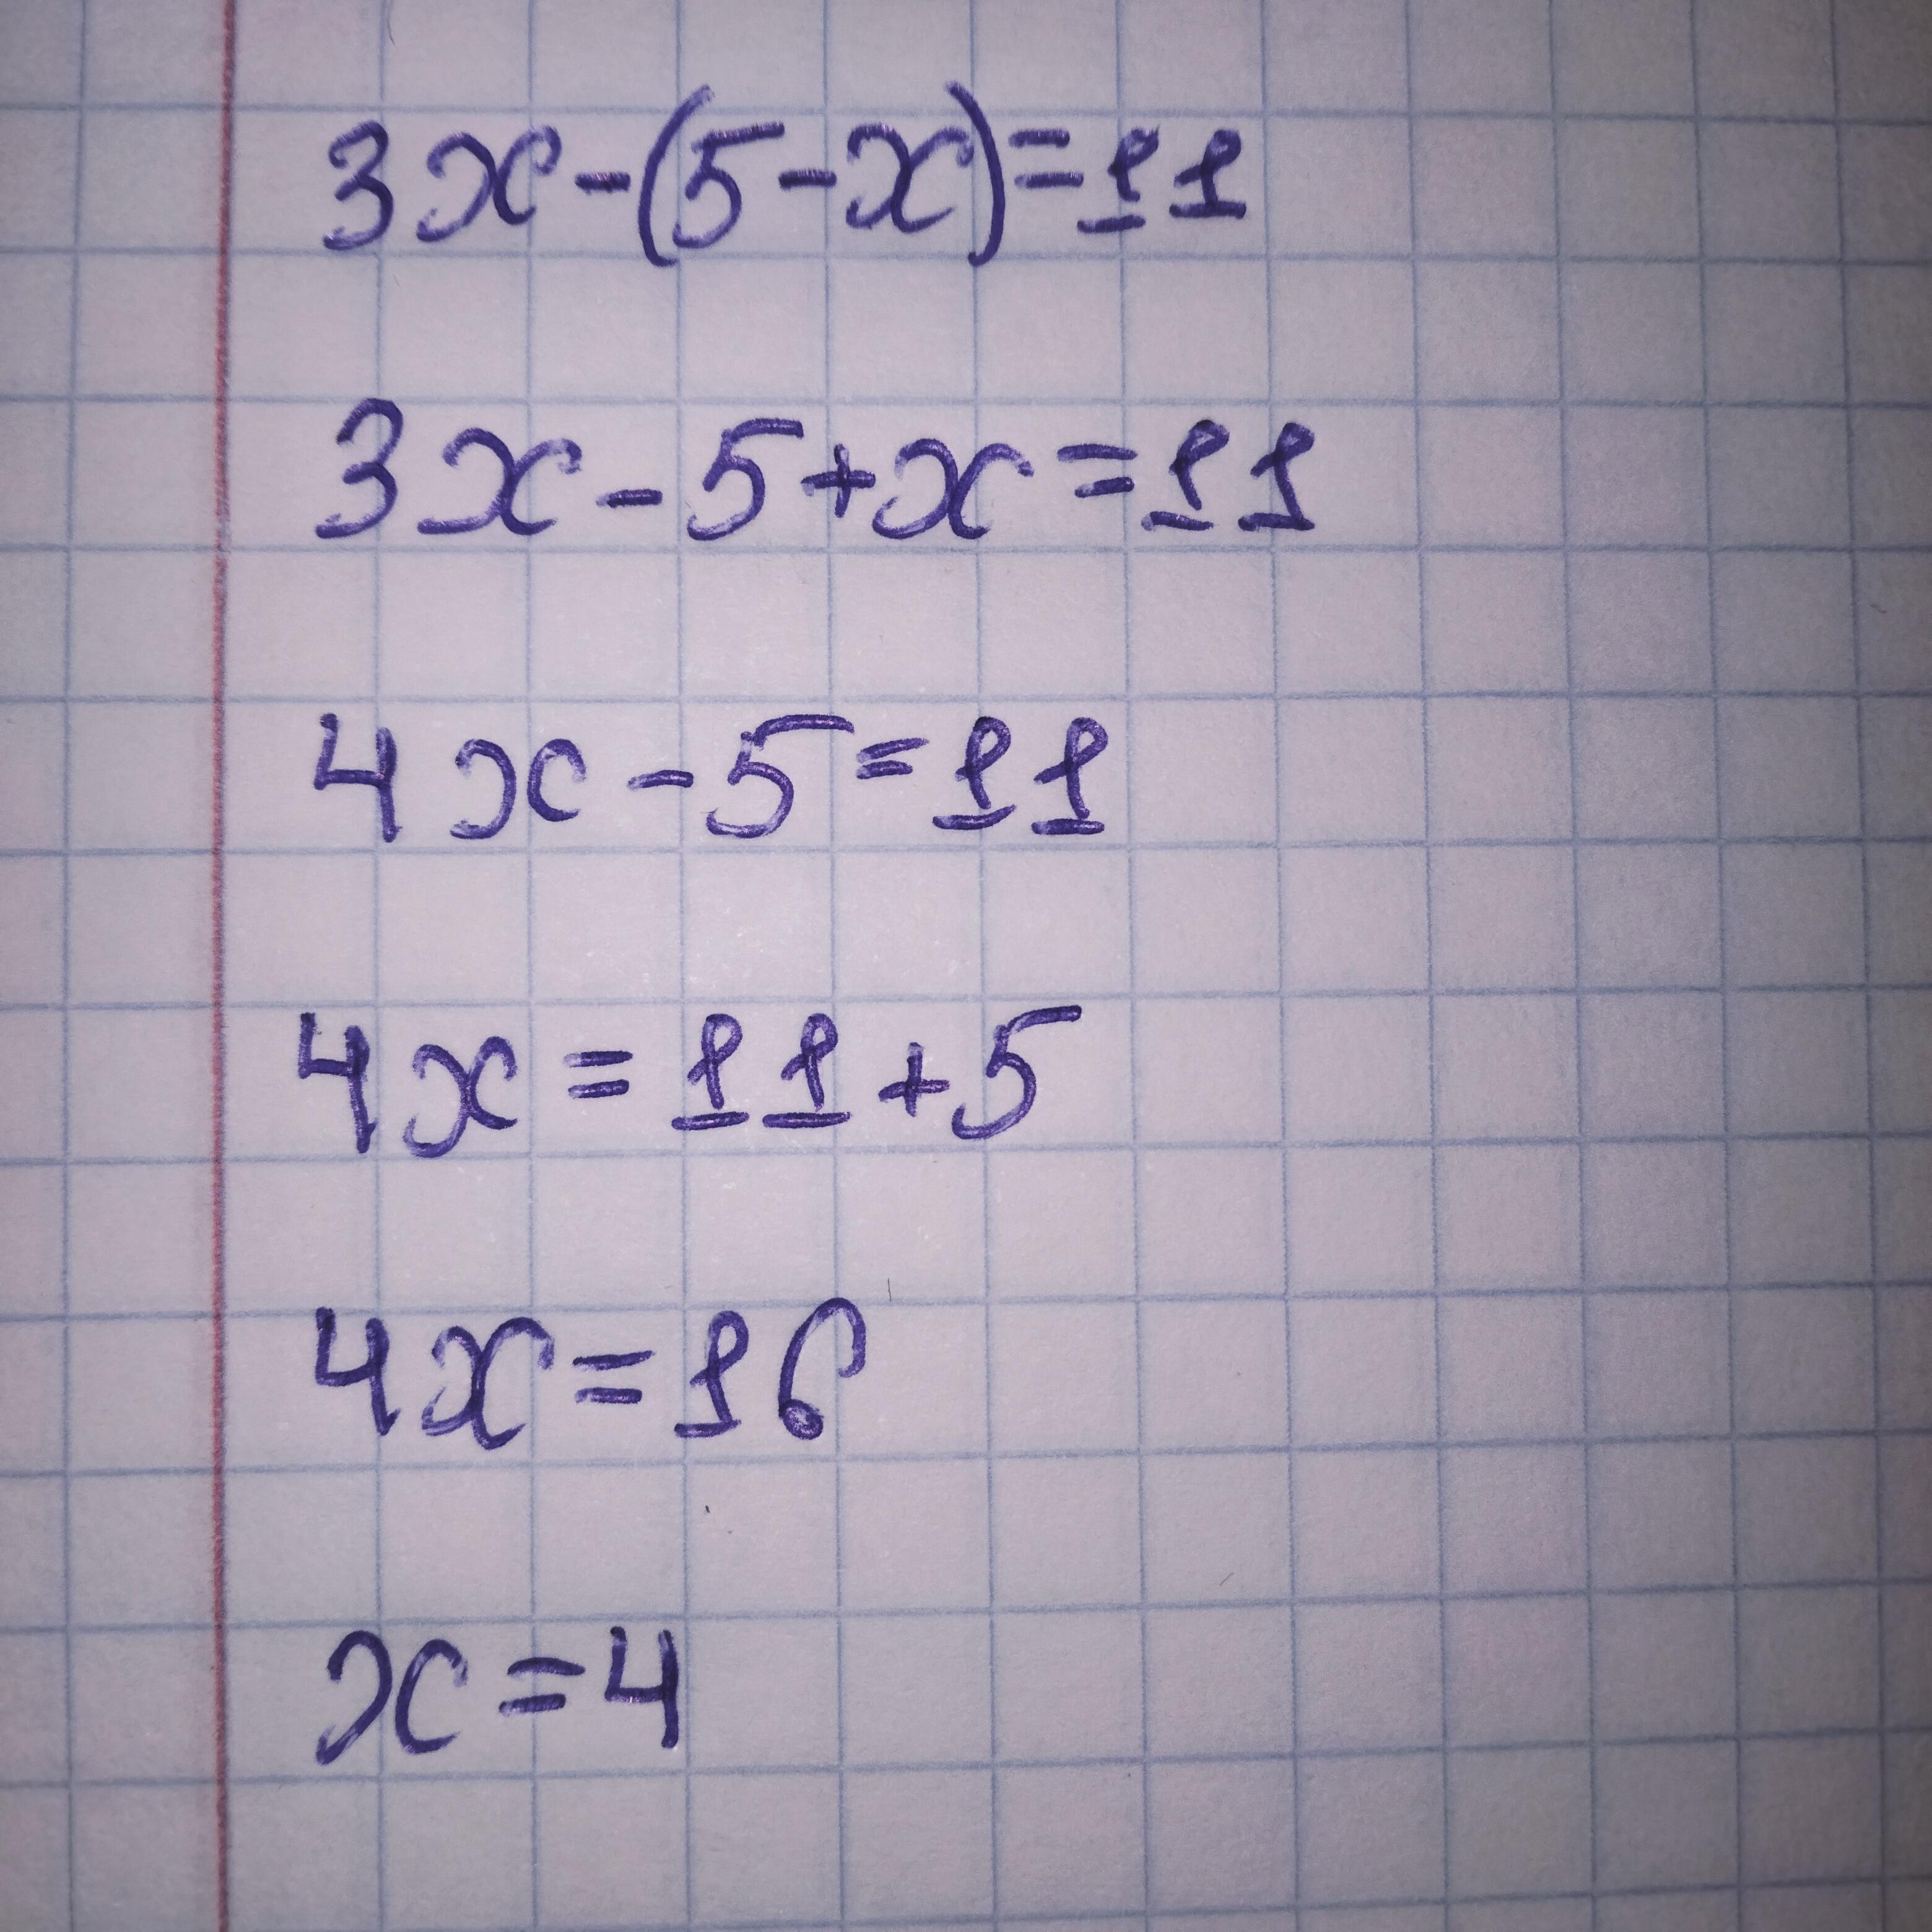 3x-(5-x)=11
3x-5+x=11
4x-5=11
4x=11+5
4x=16
x=4